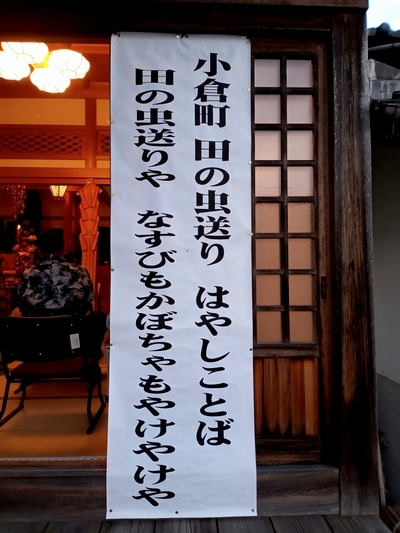 小倉町 田の虫送り はやしことば
田の虫送りや なすびもかぼちゃもやけやけや